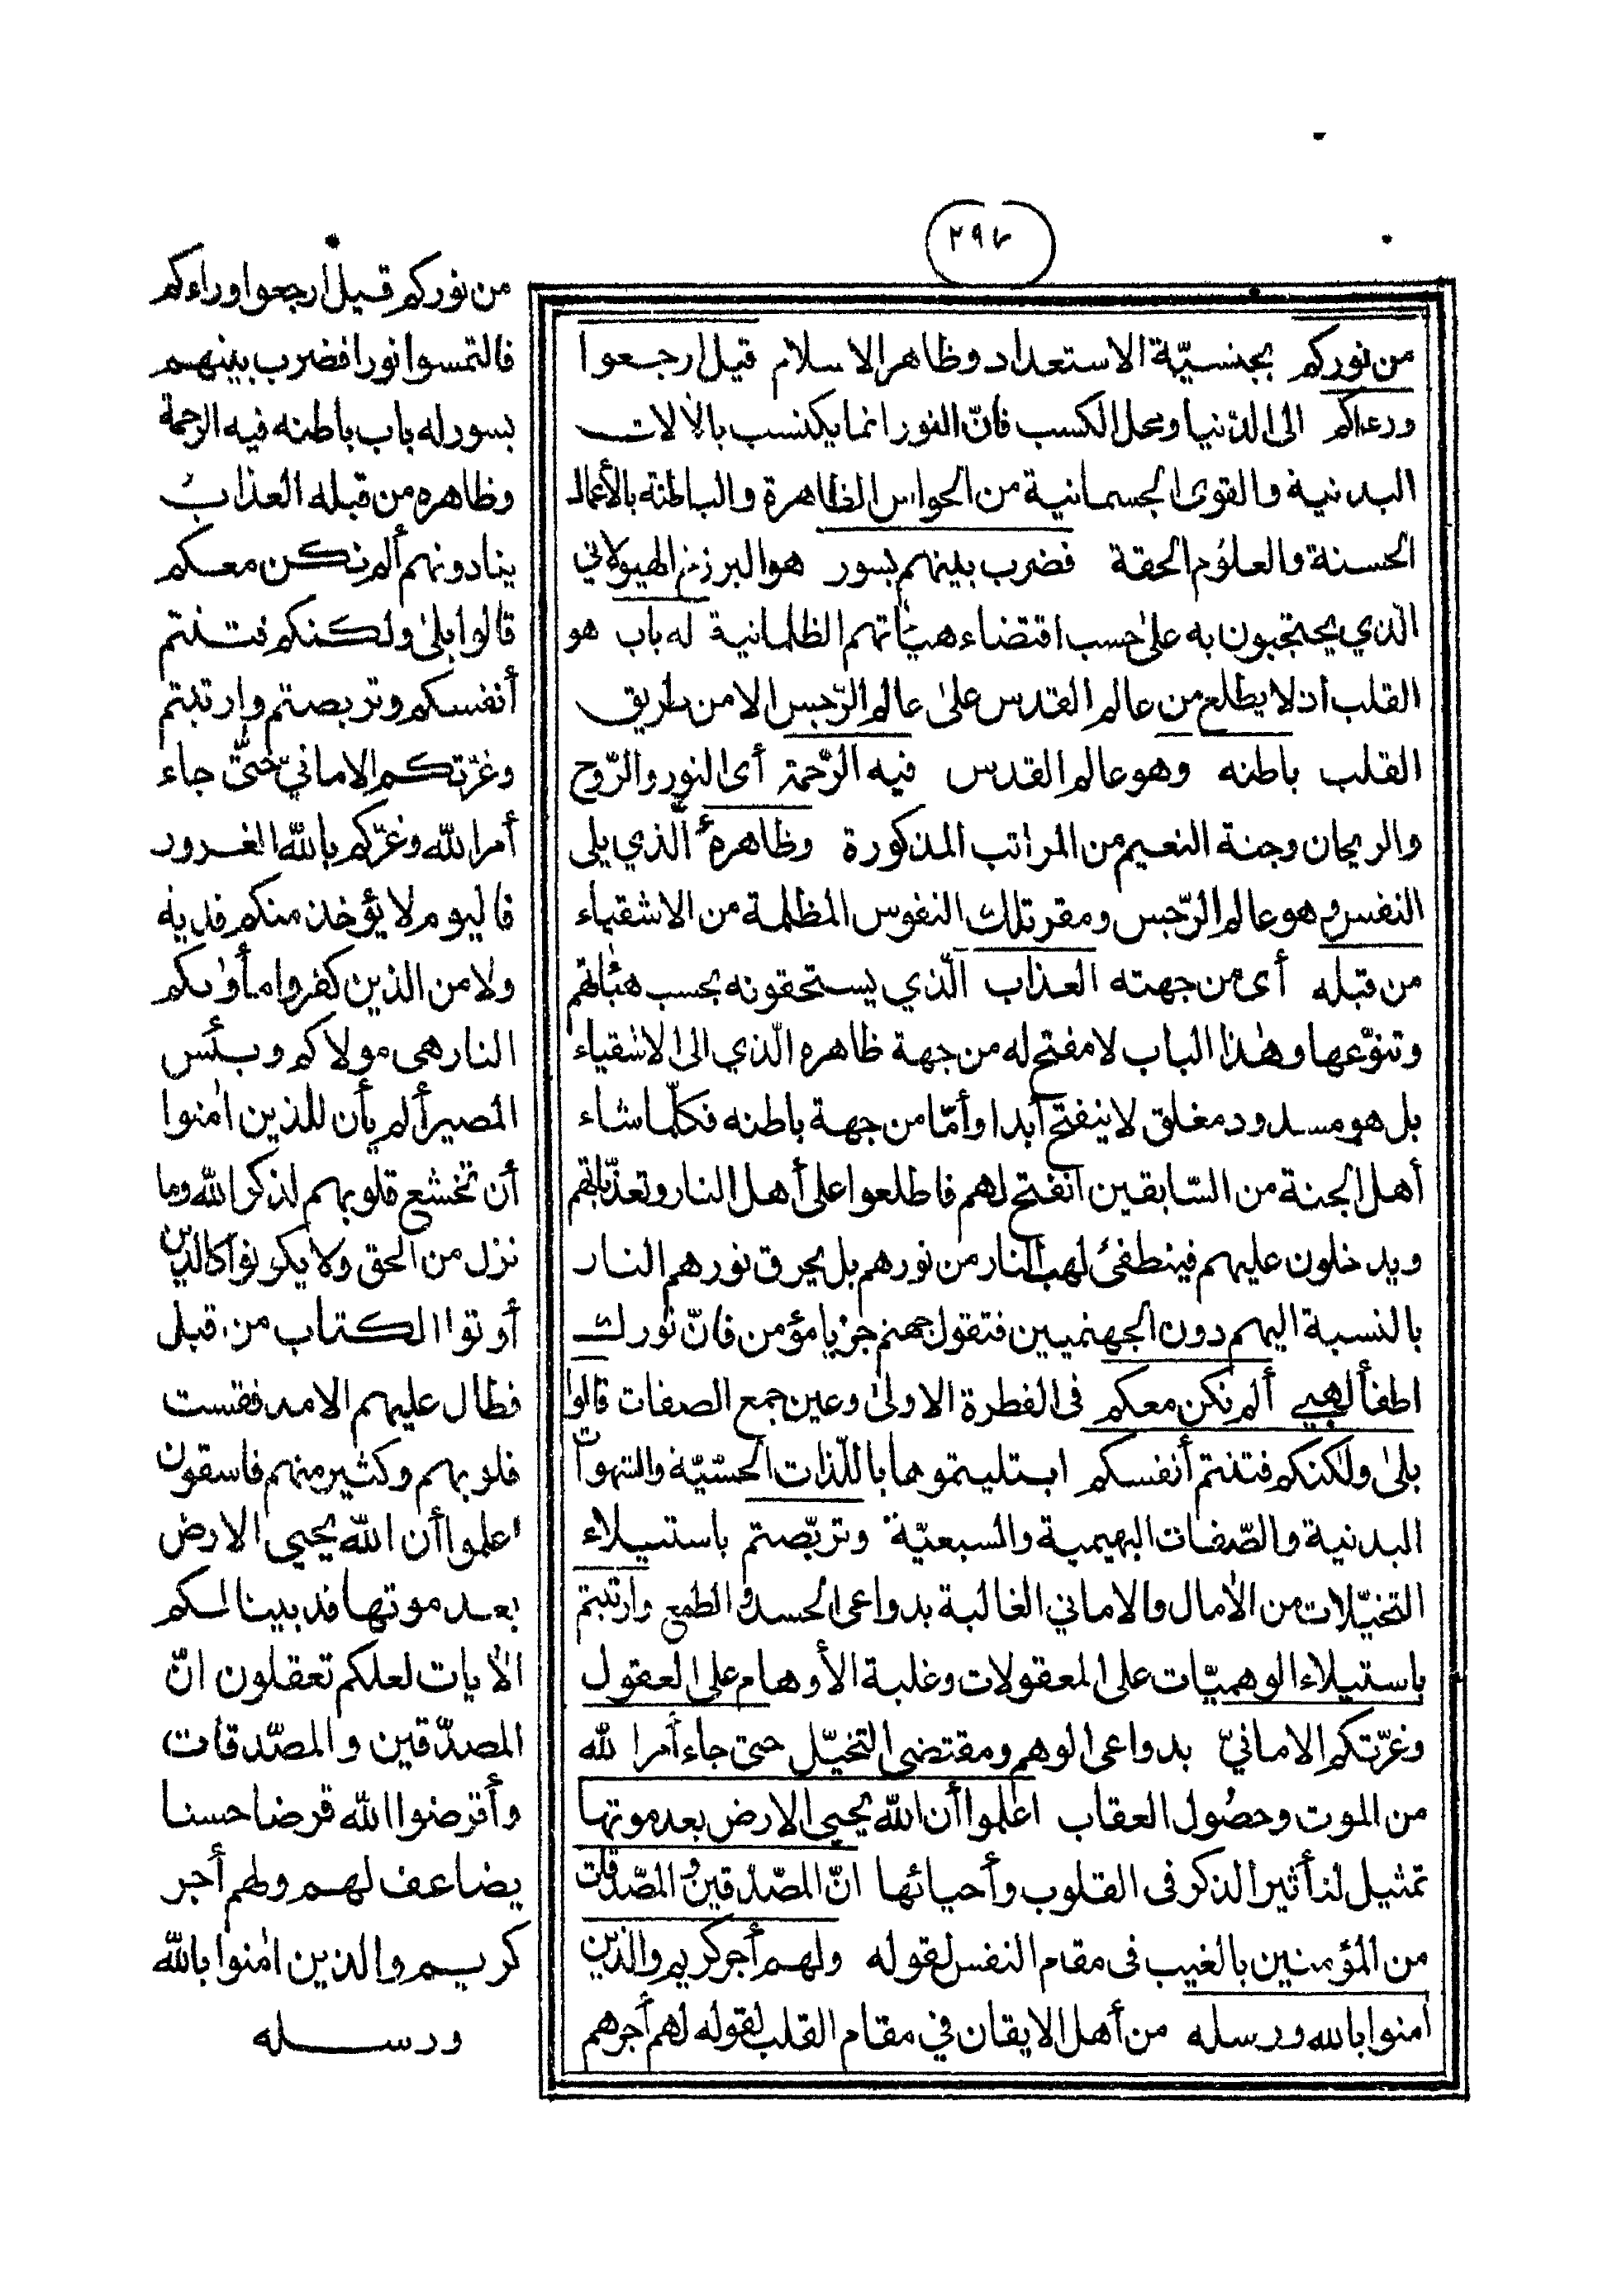 ٢٩٧
من نوركم بجنسيّة الاستعداد وظاهر الاسلام قيل ارجعوا
وراءكم الى الدّنيا ومحل الكسب فانّ النور انما يكتسب بالآلات
البدنية والقوى الجسمانية من الحواس الظاهرة والباطنة بالأعمال
الحسنة والعلوم الحقة فضرب بينهم بسور هو البرزخ الهيولاني
الّذي يحتجبون به على حسب اقتضاء هيآتهم الظلمانية له باب هو
القلب اذ لا يطلع من عالم القدس على عالم الرّجس الا من طريق
القلب باطنه وهو عالم القدس فيه الرّحمة أى النور والرّوح
والريحان وجنة النعيم من المراتب المذكورة وظاهره الّذي يلى
النفس وهو عالم الرّجس ومقر تلك النفوس المظلمة من الاشقياء
من قبله أى من جهته العذاب الّذي يستحقونه بحسب هيآتهم
وتنوّعها وهذا الباب لا مفتح له من جهة ظاهره الّذي الى الاشقياء
بل هو مسدود مغلق لا ينفتح أبدا وأمّا من جهة باطنه فكلّما شاء
أهل الجنة من السّابقين انفتح لهم فاطلعوا على أهل النار وتعذّبهم
ويدخلون عليهم فينطفئ لهب النار من نورهم بل يحرق نورهم النار
بالنسبة اليهم دون الجهنميين فتقول جهنم جز يا مؤمن فانّ نورك
اطفأ لهبي ألم نكن معكم فى الفطرة الاولى وعين جمع الصفات قالوا
بلى ولكنكم فتنتم أنفسكم ابتليتموها باللّذات الحسّيّة والشهوات
البدنية والصّفات البهيمية والسبعيّة وتربّصتم باستيلاء
التخيّلات من الآمال والاماني الغالبة بدواعى الحسد والطمع وارتبتم
باستيلاء الوهميّات على المعقولات وغلبة الأوهام على العقول
وغرّتكم الامانيّ بدواعى الوهم ومقتضى التخيّل حتى جاء أمر الله
من الموت وحصول العقاب اعلموا أن الله يحيي الارض بعد موتها
تمثيل لتأثير الذكر فى القلوب وأحيائها انّ المصّدّقين والمصّدّقات
من المؤمنين بالغيب فى مقام النفس لقوله ولهم أجر كريم والذين
آمنوا بالله ورسله من أهل الايقان في مقام القلب لقوله لهم أجرهم
من نوركم قيل ارجعوا وراءكم
فالتمسوا نورا فضرب بينهم
بسور له باب باطنه فيه الرحمة
وظاهره من قبله العذاب
ينادونهم ألم نكن معكم
قالوا بلى ولكنكم فتنتم
أنفسكم وتربصتم وارتبتم
وغرّتكم الامانيّ حتّى جاء
أمر الله وغرّكم بالله الغرور
فاليوم لا يؤخذ منكم فدية
ولا من الذين كفروا مأوىكم
النار هى مولاكم وبئس
المصير ألم يأن للذين اٰمنوا
أن تخشع قلوبهم لذكر الله وما
نزل من الحق ولا يكونوا كالذين
أوتوا الكتاب من قبل
فطال عليهم الامد فقست
قلوبهم وكثير منهم فاسقون
اعلموا أن الله يحيي الارض
بعد موتها قد بينا لكم
الآيات لعلكم تعقلون انّ
المصدّقين والمصّدقات
وأقرضوا الله قرضا حسنا
يضاعف لهم ولهم أجر
كريم والذين اٰمنوا بالله
ورسله